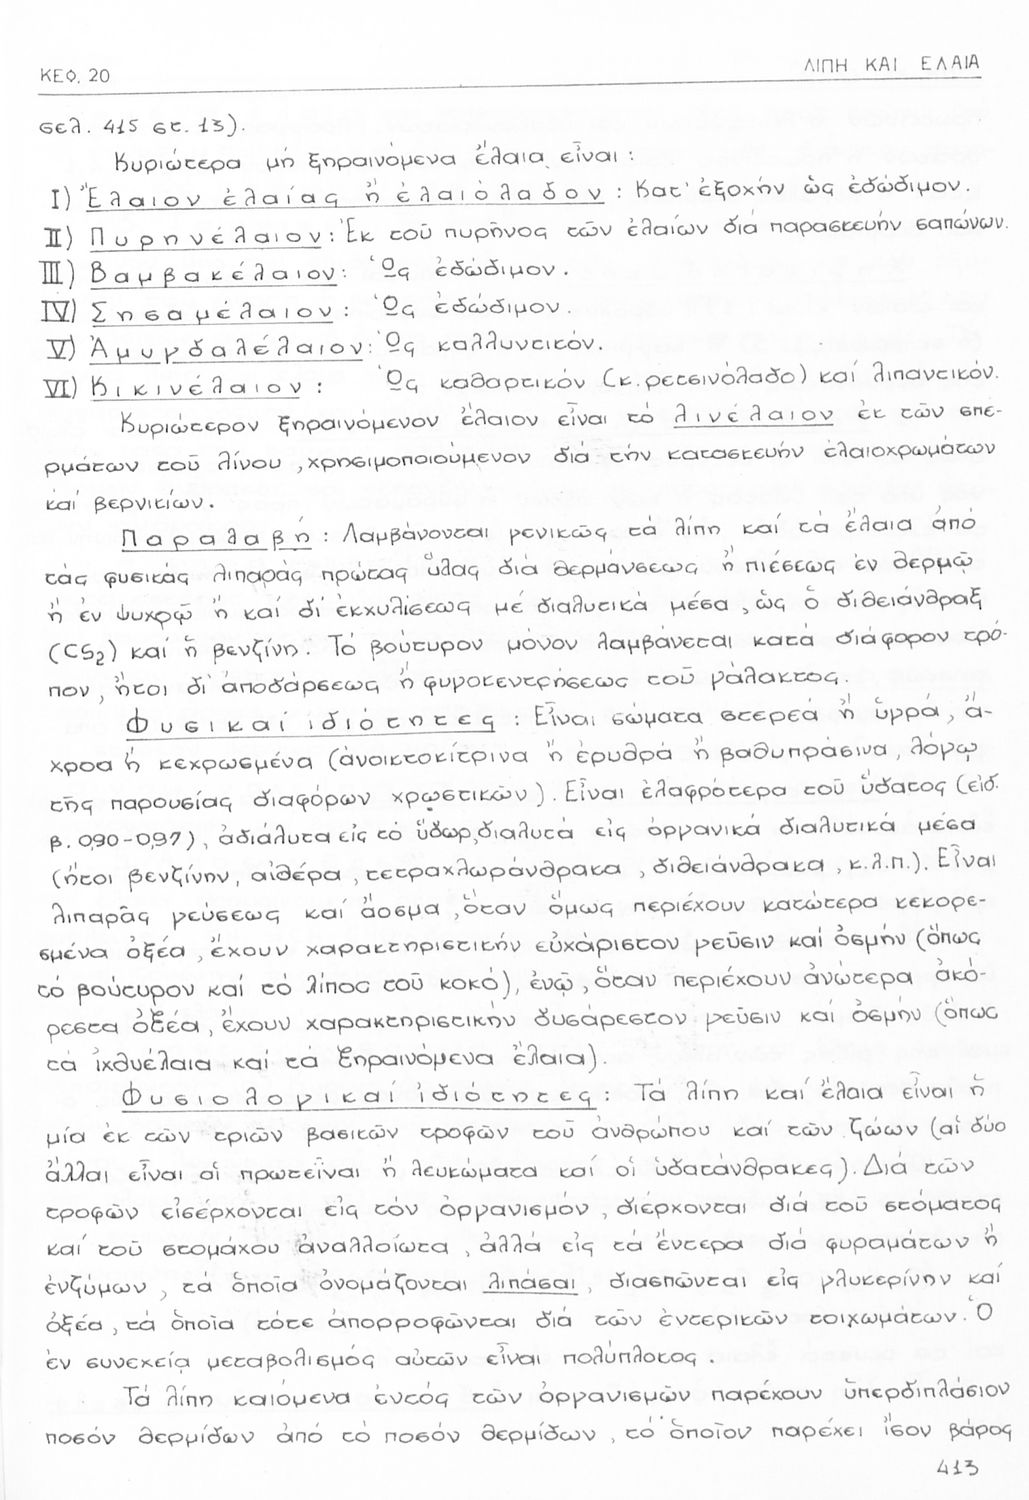 ΚΕΦ. 20
ΛΙΠΗ ΚΑΙ ΕΛΑΙΑ
σελ. 415 στ. 13).
Κυριώτερα μή ξηραινόμενα ἔλαια εἶναι:
I) Ἔλαιον ἐλαίας ἤ ἐλαιόλαδον: Κατ' ἐξοχήν ὡς ἐδώδιμον.
II) Πυρηνέλαιον: Ἐκ τοῦ πυρῆνος τῶν ἐλαίων διά παρασκευήν σαπώνων.
III) Βαμβακέλαιον: Ὡς ἐδώδιμον.
IV) Σησαμέλαιον: Ὡς ἐδώδιμον.
V) Ἀμυγδαλέλαιον: Ὡς καλλυντικόν.
VI) Κικινέλαιον: Ὡς καθαρτικόν (κ. ρετσινόλαδο) καί λιπαντικόν.
Κυριώτερον ξηραινόμενον ἔλαιον εἶναι τό λινέλαιον ἐκ τῶν σπε-
ρμάτων τοῦ λίνου, χρησιμοποιούμενον διά τήν κατασκευήν ἐλαιοχρωμάτων
καί βερνικίων.
Παραλαβή: Λαμβάνονται γενικῶς τά λίπη καί τά ἔλαια ἀπό
τάς φυσικάς λιπαράς πρώτας ὕλας διά θερμάνσεως ἤ πιέσεως ἐν θερμῷ
ἤ ἐν ψυχρῷ ἤ καί δι' ἐκχυλίσεως μέ διαλυτικά μέσα, ὡς ὁ διθειάνθραξ
(CS2) καί ἡ βενζίνη. Τό βούτυρον μόνον λαμβάνεται κατά διάφορον τρό-
πον, ἤτοι δι' ἀποδάρσεως ἤ φυγοκεντρήσεως τοῦ γάλακτος.
Φυσικαί ἰδιότητες: Εἶναι σώματα στερεά ἤ ὑγρά, ἄ-
χροα ἤ κεχρωσμένα (ἀνοικτοκίτρινα ἤ ἐρυθρά ἤ βαθυπράσινα, λόγῳ
τῆς παρουσίας διαφόρων χρωστικῶν). Εἶναι ἐλαφρότερα τοῦ ὕδατος (εἰδ.
β. 0,90-0,97), ἀδιάλυτα εἰς τό ὕδωρ, διαλυτά εἰς ὀργανικά διαλυτικά μέσα
(ἤτοι βενζίνην, αἰθέρα, τετραχλωράνθρακα, διθειάνθρακα, κ.λ.π.). Εἶναι
λιπαρᾶς γεύσεως καί ἄοσμα, ὅταν ὅμως περιέχουν κατώτερα κεκορε-
σμένα ὀξέα, ἔχουν χαρακτηριστικήν εὐχάριστον γεῦσιν καί ὀσμήν (ὅπως
τό βούτυρον καί τό λίπος τοῦ κοκό), ἐνῷ, ὅταν περιέχουν ἀνώτερα ἀκό-
ρεστα ὀξέα, ἔχουν χαρακτηριστικήν δυσάρεστον γεῦσιν καί ὀσμήν (ὅπως
τά ἰχθυέλαια καί τά ξηραινόμενα ἔλαια).
Φυσιολογικαί ἰδιότητες: Τά λίπη καί ἔλαια εἶναι ἡ
μία ἐκ τῶν τριῶν βασικῶν τροφῶν τοῦ ἀνθρώπου καί τῶν ζώων (αἱ δύο
ἄλλαι εἶναι οἱ πρωτεῖναι ἤ λευκώματα καί οἱ ὑδατάνθρακες). Διά τῶν
τροφῶν εἰσέρχονται εἰς τόν ὀργανισμόν, διέρχονται διά τοῦ στόματος
καί τοῦ στομάχου ἀναλλοίωτα, ἀλλά εἰς τά ἔντερα διά φυραμάτων ἤ
ἐνζύμων, τά ὁποῖα ὀνομάζονται λιπάσαι, διασπῶνται εἰς γλυκερίνην καί
ὀξέα, τά ὁποῖα τότε ἀπορροφῶνται διά τῶν ἐντερικῶν τοιχωμάτων. Ὁ
ἐν συνεχείᾳ μεταβολισμός αὐτῶν εἶναι πολύπλοκος.
Τά λίπη καιόμενα ἐντός τῶν ὀργανισμῶν παρέχουν ὑπερδιπλάσιον
ποσόν θερμίδων ἀπό τό ποσόν θερμίδων, τό ὁποῖον παρέχει ἴσον βάρος
413